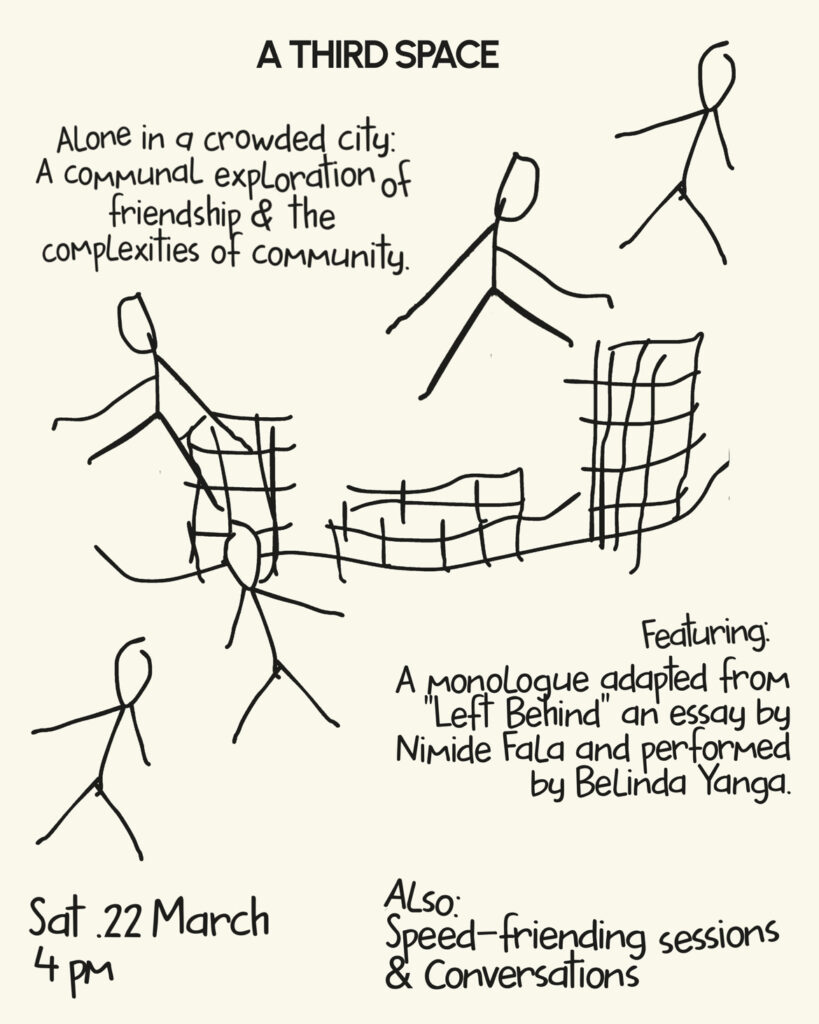 A THIRD SPACE
Alone in a crowded city:
A communal exploration of
friendship & the
complexities of community.
Featuring:
A monologue adapted from
"Left Behind" an essay by
Nimide Fala and performed
by Belinda Yanga.
Sat .22 March
4 pm
Also:
Speed-friending sessions
& Conversations